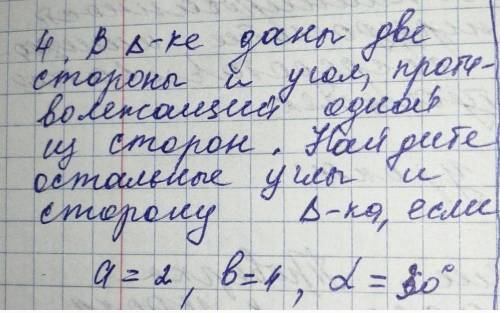 4. В Δ-ке даны две
стороны и угол, проти-
волежащий одной
из сторон. Найдите
остальные углы и
сторону Δ-ка, если
a = 2, b = 4, α =